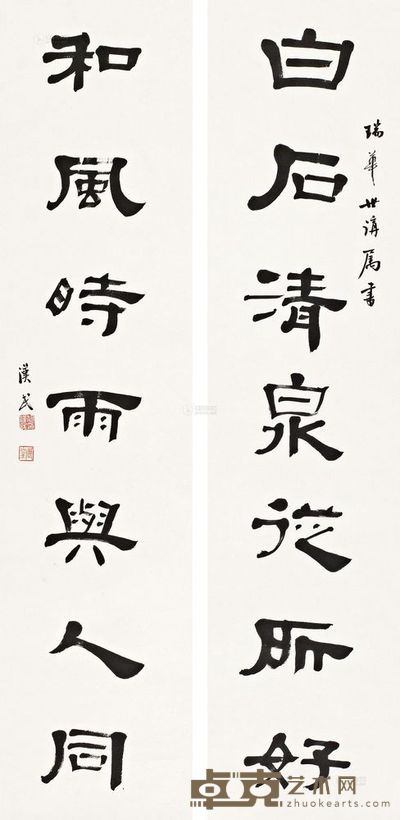 白石清泉從所好
瑞華世講屬書
和風時雨與人同
漢民
卓克艺术网
zhuokearts.com